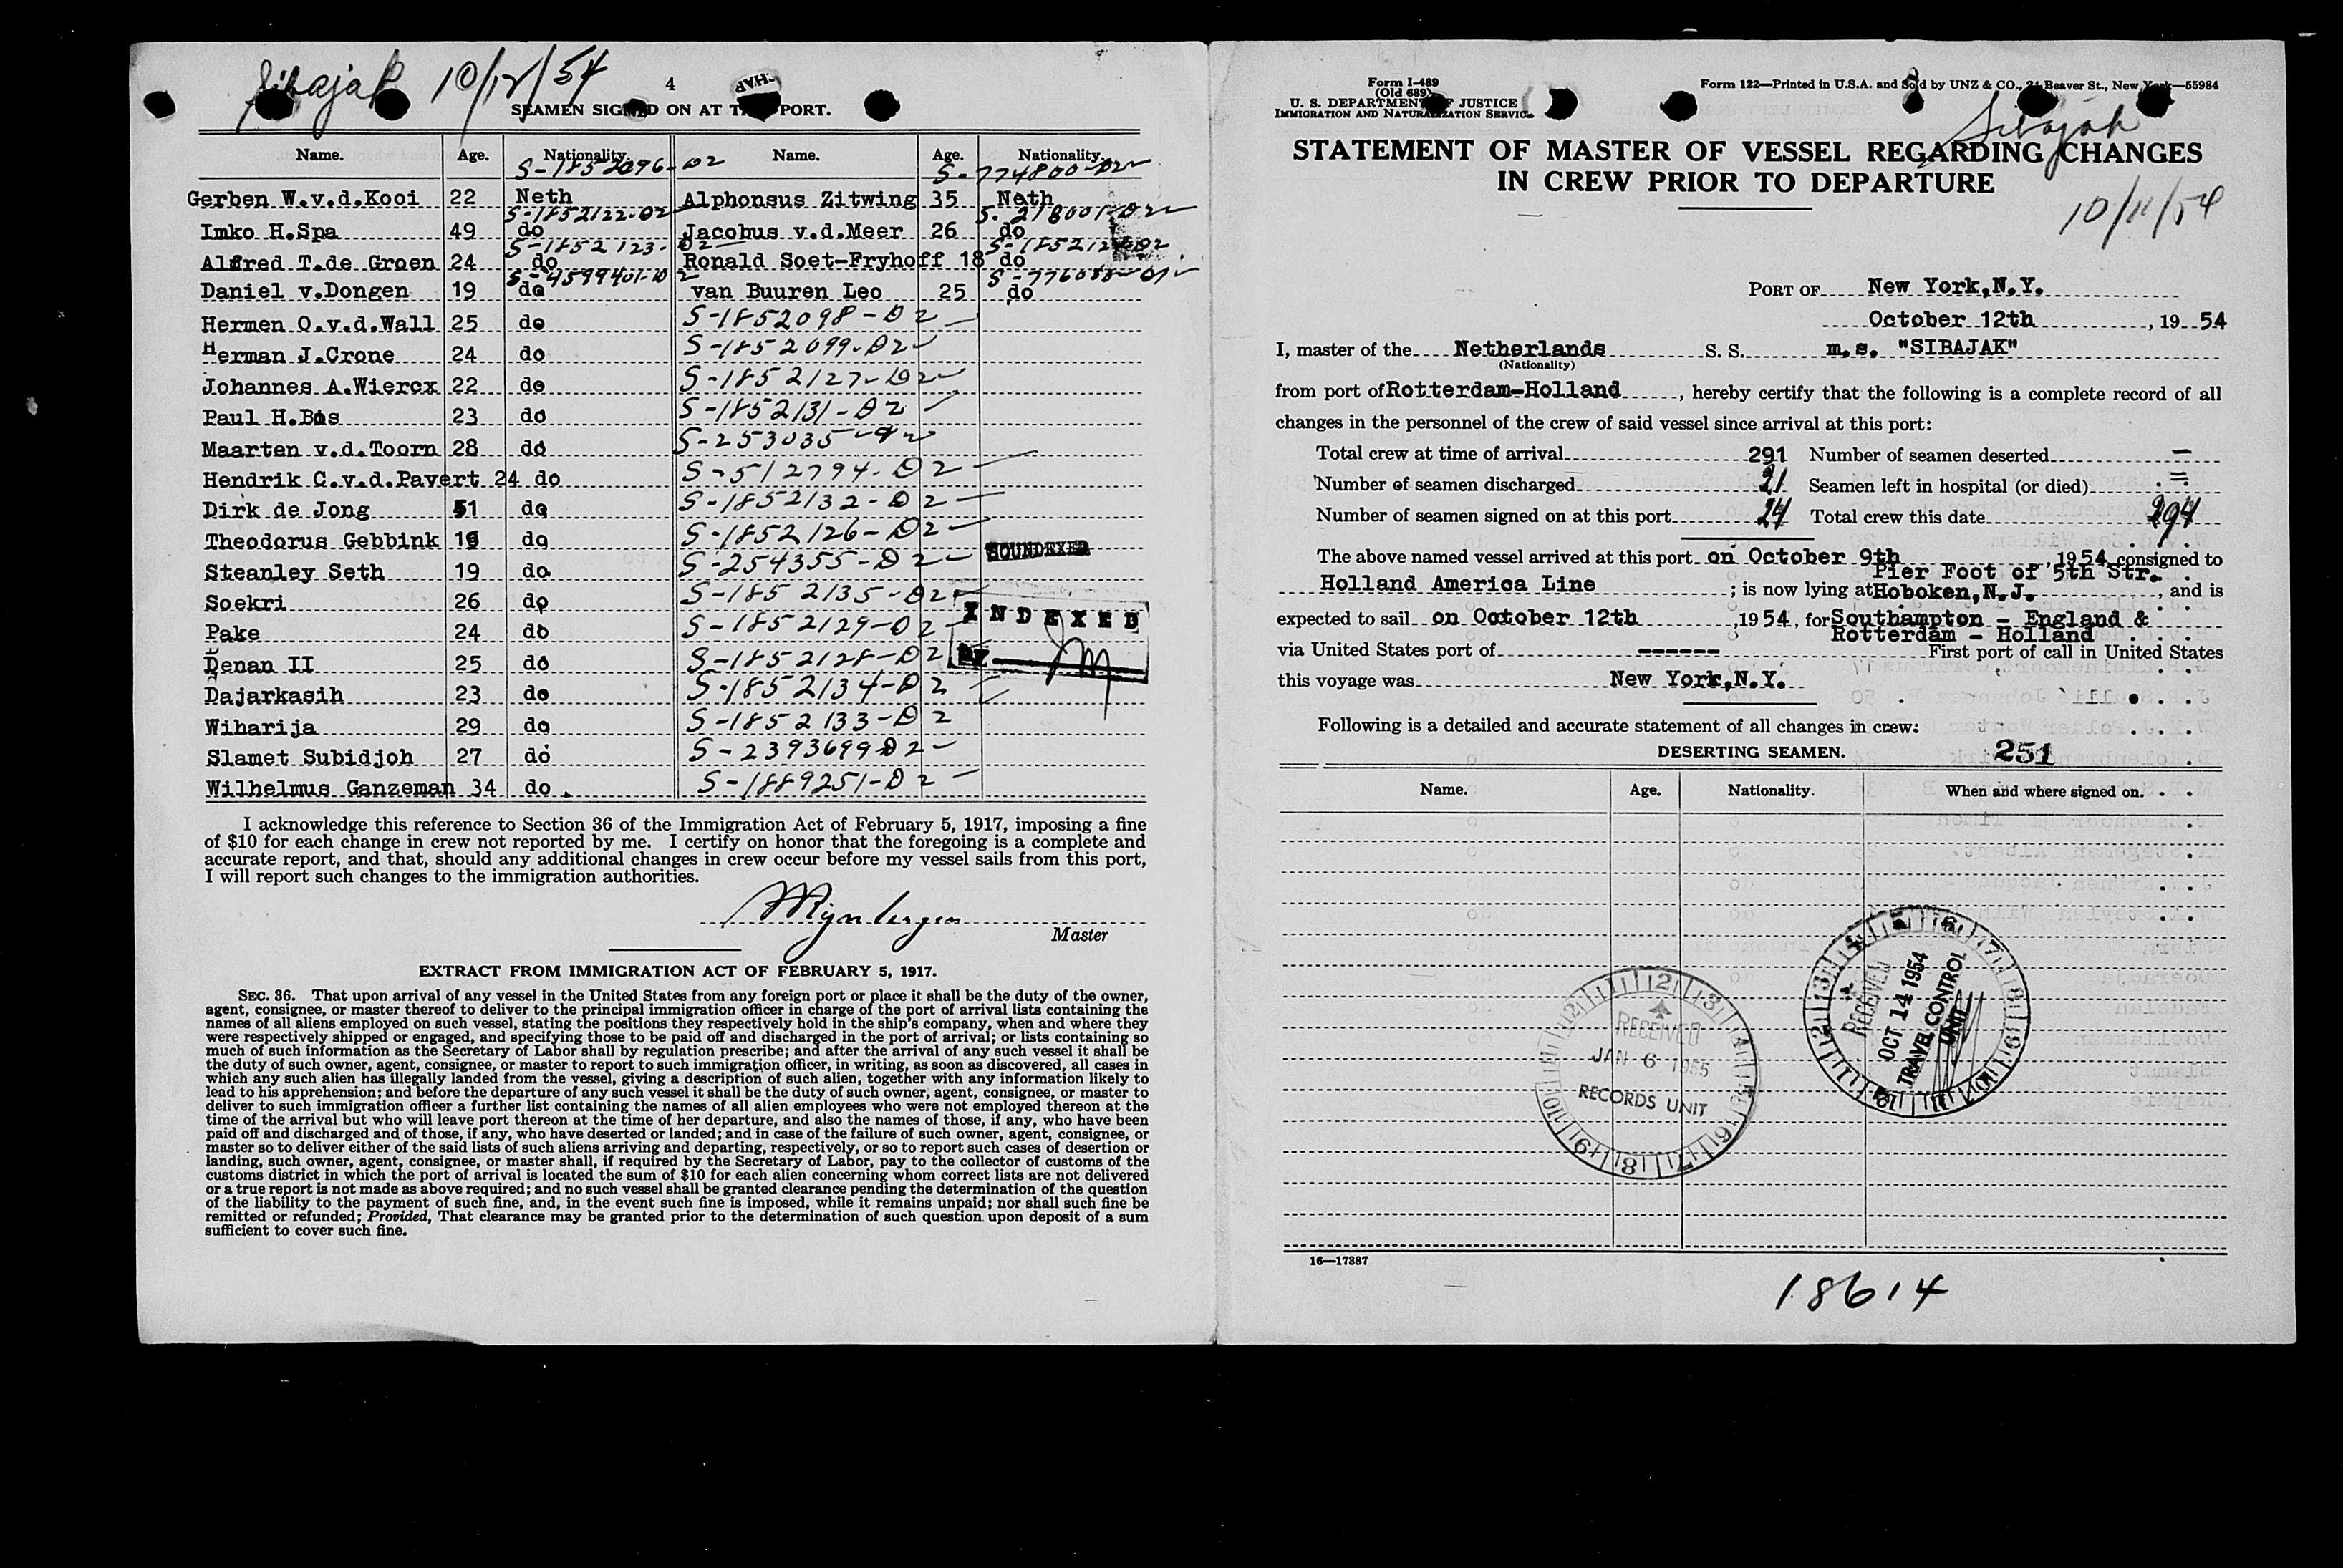 Sibajak 10/12/54
4
SEAMEN SIGNED ON AT THIS PORT.
Name. Age. Nationality. Name. Age. Nationality.
S-1852096-D2 S-774800-D2
Gerben W.v.d.Kooi 22 Neth Alphonsus Zitwing 35 Neth
S-1852122-D2 S-218001-D2
Imko H.Spa 49 do Jacobus v.d.Meer 26 do
S-1852123-D2
Alfred T.de Groen 24 do Ronald Soet-Fryhoff 18 do
S-4599401-D2
Daniel v.Dongen 19 do van Buuren Leo 25 do
Hermen O.v.d.Wall 25 do S-1852098-D2
Herman J.Crone 24 do S-1852099-D2
Johannes A.Wiercx 22 do S-1852127-D2
Paul H.Bos 23 do S-1852131-D2
Maarten v.d.Toorn 28 do
Hendrik C.v.d.Pavert 24 do S-512794-D2
Dirk de Jong 51 do S-1852132-D2
Theodorus Gebbink 19 do S-1852126-D2
SOUNDEXED
Steanley Seth 19 do S-254355-D2
Soekri 26 do S-1852135-D2
INDEXED
Pake 24 do S-1852129-D2
By
Denan II 25 do S-1852128-D2
Dajarkasih 23 do S-1852134-D2
Wiharija 29 do S-1852133-D2
Slamet Subidjoh 27 do S-2393699D2
Wilhelmus Ganzeman 34 do S-1889251-D2
I acknowledge this reference to Section 36 of the Immigration Act of February 5, 1917, imposing a fine
of $10 for each change in crew not reported by me. I certify on honor that the foregoing is a complete and
accurate report, and that, should any additional changes in crew occur before my vessel sails from this port,
I will report such changes to the immigration authorities.
Master
EXTRACT FROM IMMIGRATION ACT OF FEBRUARY 5, 1917.
SEC. 36. That upon arrival of any vessel in the United States from any foreign port or place it shall be the duty of the owner,
agent, consignee, or master thereof to deliver to the principal immigration officer in charge of the port of arrival lists containing the
names of all aliens employed on such vessel, stating the positions they respectively hold in the ship's company, when and where they
were respectively shipped or engaged, and specifying those to be paid off and discharged in the port of arrival; or lists containing so
much of such information as the Secretary of Labor shall by regulation prescribe; and after the arrival of any such vessel it shall be
the duty of such owner, agent, consignee, or master to report to such immigration officer, in writing, as soon as discovered, all cases in
which any such alien has illegally landed from the vessel, giving a description of such alien, together with any information likely to
lead to his apprehension; and before the departure of any such vessel it shall be the duty of such owner, agent, consignee, or master to
deliver to such immigration officer a further list containing the names of all alien employees who were not employed thereon at the
time of the arrival but who will leave port thereon at the time of her departure, and also the names of those, if any, who have been
paid off and discharged and of those, if any, who have deserted or landed; and in case of the failure of such owner, agent, consignee, or
master so to deliver either of the said lists of such aliens arriving and departing, respectively, or so to report such cases of desertion or
landing, such owner, agent, consignee, or master shall, if required by the Secretary of Labor, pay to the collector of customs of the
customs district in which the port of arrival is located the sum of $10 for each alien concerning whom correct lists are not delivered
or a true report is not made as above required; and no such vessel shall be granted clearance pending the determination of the question
of the liability to the payment of such fine, and, in the event such fine is imposed, while it remains unpaid; nor shall such fine be
remitted or refunded; Provided, That clearance may be granted prior to the determination of such question upon deposit of a sum
sufficient to cover such fine.
Form I-489
(Old 689)
U. S. DEPARTMENT OF JUSTICE
IMMIGRATION AND NATURALIZATION SERVICE
Form 122—Printed in U.S.A. and Sold by UNZ & CO., 24 Beaver St., New York—55984
Sibajak
STATEMENT OF MASTER OF VESSEL REGARDING CHANGES
IN CREW PRIOR TO DEPARTURE
10/11/54
PORT OF New York,N.Y.
October 12th, 19 54
I, master of the Netherlands S. S. m.s. "SIBAJAK"
(Nationality)
from port of Rotterdam-Holland, hereby certify that the following is a complete record of all
changes in the personnel of the crew of said vessel since arrival at this port:
Total crew at time of arrival 291 Number of seamen deserted —
Number of seamen discharged 21 Seamen left in hospital (or died) =
Number of seamen signed on at this port 24 Total crew this date 294
The above named vessel arrived at this port on October 9th, 1954, consigned to
Pier Foot of 5th Str.
Holland America Line; is now lying at Hoboken,N.J., and is
expected to sail on October 12th, 1954, for Southampton - England &
Rotterdam - Holland
via United States port of ------ First port of call in United States
this voyage was New York,N.Y.
Following is a detailed and accurate statement of all changes in crew:
DESERTING SEAMEN. 251
Name. Age. Nationality. When and where signed on.
RECEIVED
OCT 14 1954
TRAVEL CONTROL
UNIT
RECEIVED
JAN 6 1955
RECORDS UNIT
16—17887
18614